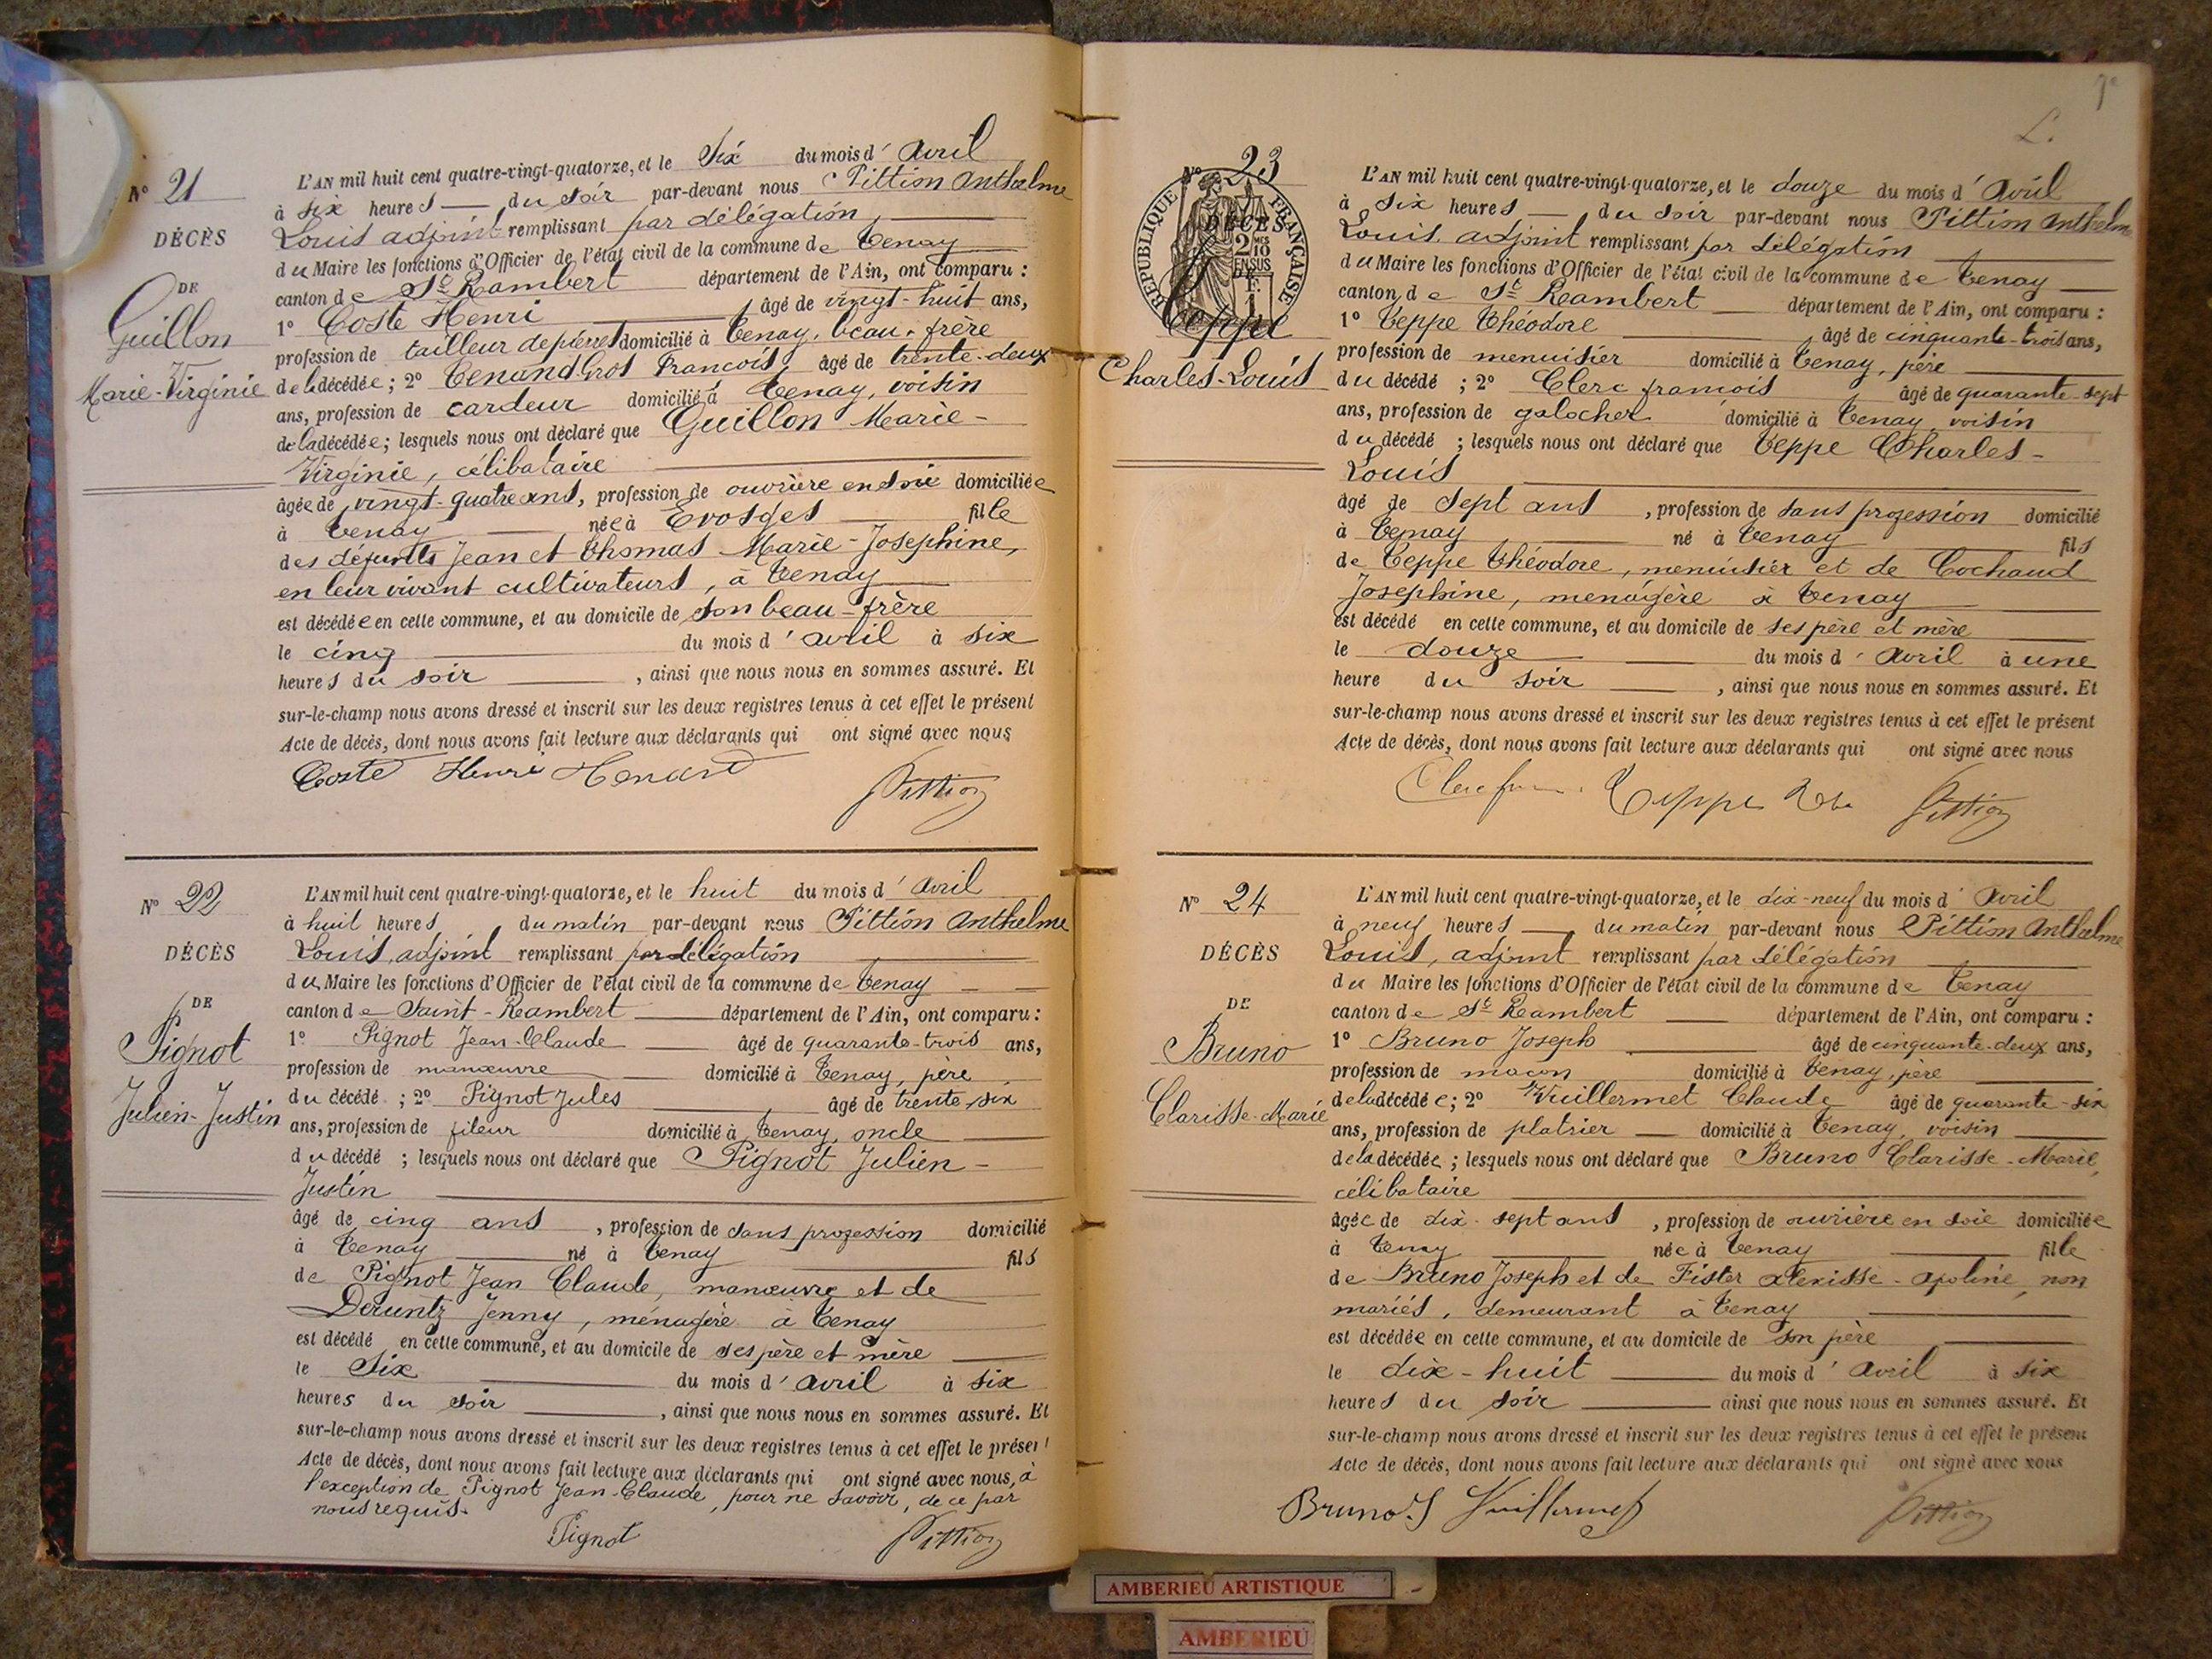 N° 21
DÉCÈS
DE
Guillon
Marie-Virginie
L'AN mil huit cent quatre-vingt-quatorze, et le Six du mois d' Avril
à six heures du soir par-devant nous Pittion Anthelme
Louis adjoint remplissant par délégation,
du Maire les fonctions d'Officier de l'état civil de la commune de Tenay
canton de St Rambert département de l'Ain, ont comparu :
1° Coste Henri, âgé de vingt-huit ans,
profession de tailleur de pierres domicilié à Tenay, beau-frère
de la décédée ; 2° Tenand-Gros François, âgé de trente-deux
ans, profession de cardeur domicilié à Tenay, voisin
de la décédée ; lesquels nous ont déclaré que Guillon Marie-
Virginie, célibataire
âgée de vingt-quatre ans, profession de ouvrière en soie domiciliée
à Tenay née à Evosges fille
des défunts Jean et Thomas Marie-Josephine,
en leur vivant cultivateurs, à Tenay
est décédée en cette commune, et au domicile de son beau-frère
le cinq du mois d' avril à six
heures du soir, ainsi que nous nous en sommes assuré. Et
sur-le-champ nous avons dressé et inscrit sur les deux registres tenus à cet effet le présent
Acte de décès, dont nous avons fait lecture aux déclarants qui ont signé avec nous
Coste Henri Tenand Pittion
N° 22
DÉCÈS
DE
Pignot
Julien-Justin
L'AN mil huit cent quatre-vingt-quatorze, et le huit du mois d' Avril
à huit heures du matin par-devant nous Pittion Anthelme
Louis, adjoint remplissant par délégation
du Maire les fonctions d'Officier de l'état civil de la commune de Tenay
canton de Saint-Rambert département de l'Ain, ont comparu :
1° Pignot Jean-Claude âgé de quarante-trois ans,
profession de manœuvre domicilié à Tenay, père
du décédé ; 2° Pignot Jules, âgé de trente-six
ans, profession de fileur domicilié à Tenay, oncle
du décédé ; lesquels nous ont déclaré que Pignot Julien-
Justin
âgé de cinq ans, profession de sans profession domicilié
à Tenay né à Tenay fils
de Pignot Jean Claude, manœuvre et de
Deruntz Jenny, ménagère à Tenay
est décédé en cette commune, et au domicile de ses père et mère
le Six du mois d' avril à six
heures du soir, ainsi que nous nous en sommes assuré. Et
sur-le-champ nous avons dressé et inscrit sur les deux registres tenus à cet effet le présent
Acte de décès, dont nous avons fait lecture aux déclarants qui ont signé avec nous, à
l'exception de Pignot Jean-Claude, pour ne savoir, de ce par
nous requis.
Pignot Pittion
7e
L.
N° 23
RÉPUBLIQUE FRANÇAISE
DÉCÈS
2 MES 10 EN SUS
DE
Teppe
Charles-Louis
L'AN mil huit cent quatre-vingt-quatorze, et le douze du mois d' Avril
à six heures du soir par-devant nous Pittion Anthelme
Louis, adjoint remplissant par délégation
du Maire les fonctions d'Officier de l'état civil de la commune de Tenay
canton de St Rambert département de l'Ain, ont comparu :
1° Teppe Théodore, âgé de cinquante-trois ans,
profession de menuisier domicilié à Tenay, père
du décédé ; 2° Clerc francois, âgé de quarante-sept
ans, profession de galocher domicilié à Tenay, voisin
du décédé ; lesquels nous ont déclaré que Teppe Charles-
Louis
âgé de Sept ans, profession de sans profession domicilié
à Tenay né à Tenay fils
de Teppe Théodore, menuisier et de Cochaud
Josephine, ménagère à Tenay
est décédé en cette commune, et au domicile de ses père et mère
le douze du mois d' Avril à une
heure du soir, ainsi que nous nous en sommes assuré. Et
sur-le-champ nous avons dressé et inscrit sur les deux registres tenus à cet effet le présent
Acte de décès, dont nous avons fait lecture aux déclarants qui ont signé avec nous
Teppe Pittion
N° 24
DÉCÈS
DE
Bruno
Clarisse-Marie
L'AN mil huit cent quatre-vingt-quatorze, et le dix-neuf du mois d' Avril
à neuf heures du matin par-devant nous Pittion Anthelme
Louis, adjoint remplissant par délégation
du Maire les fonctions d'Officier de l'état civil de la commune de Tenay
canton de St Rambert département de l'Ain, ont comparu :
1° Bruno Joseph âgé de cinquante-deux ans,
profession de maçon domicilié à Tenay, père
de la décédée ; 2° Vuillermet Claude âgé de quarante-six
ans, profession de platrier domicilié à Tenay, voisin
de la décédée ; lesquels nous ont déclaré que Bruno Clarisse-Marie,
célibataire
âgée de dix-sept ans, profession de ouvrière en soie domiciliée
à Tenay née à Tenay fille
de Bruno Joseph et de Fister Alexisse-Apoline, non
mariés, demeurant à Tenay
est décédée en cette commune, et au domicile de son père
le dix-huit du mois d' Avril à six
heures du soir ainsi que nous nous en sommes assuré. Et
sur-le-champ nous avons dressé et inscrit sur les deux registres tenus à cet effet le présent
Acte de décès, dont nous avons fait lecture aux déclarants qui ont signé avec nous
Bruno. J Vuillermet Pittion
AMBERIEU ARTISTIQUE
AMBERIEU